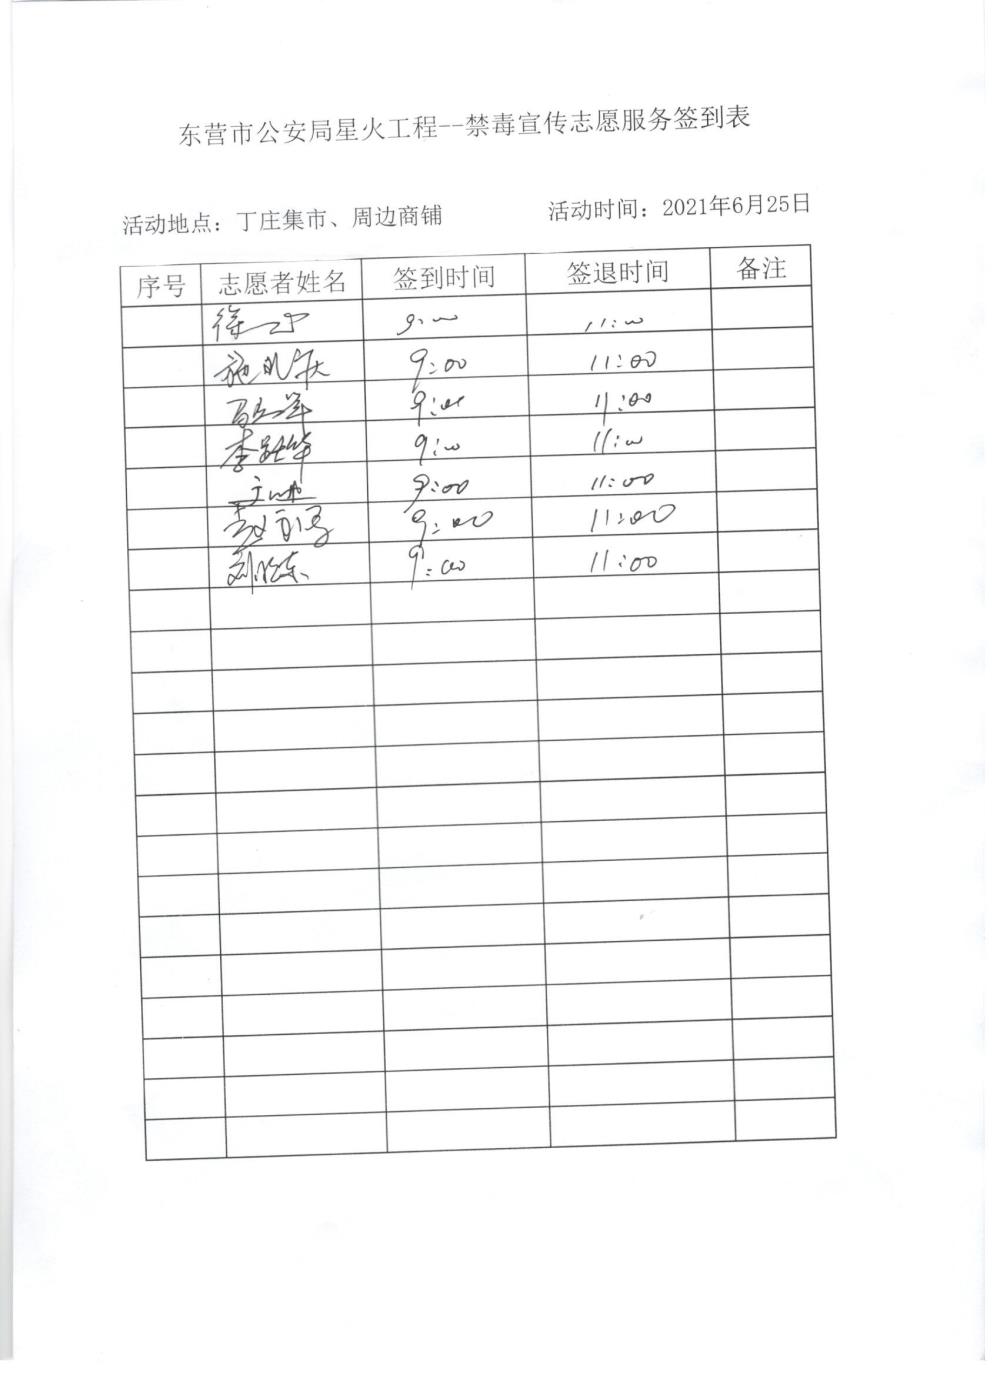 东营市公安局星火工程--禁毒宣传志愿服务签到表
活动地点：丁庄集市、周边商铺 活动时间：2021年6月25日
序号 志愿者姓名 签到时间 签退时间 备注
徐 9:00 11:00
9:00 11:00
9:00 11:00
李 华 9:00 11:00
9:00 11:00
赵 9:00 11:00
刘 东 9:00 11:00